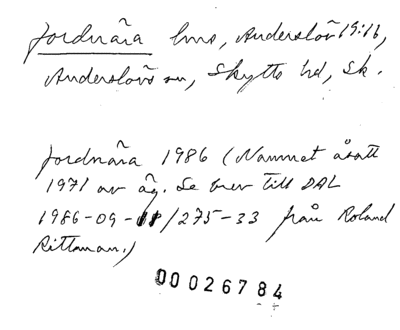 Jordnära hmd, Anderslöv 19:16,
Anderslövs sn, Skytts hd, Sk.
Jordnära 1986 (Namnet åsatt
1971 av äg. Se brev till DAL
1986-09-11/275-33 från Roland
Rittman.)
00026784